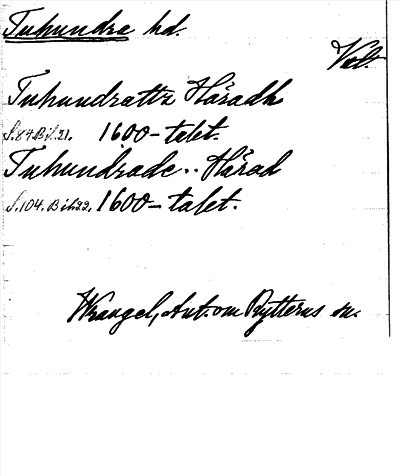 Tuhundra hd.
Vstl.
Tuhundrattz Häradh
S. 84 Bil. 21. 1600-talet.
Tuhundrade .. Härad
S. 104. Bil. 22. 1600-talet.
Wrangel, Ant. om Rytterns sn.